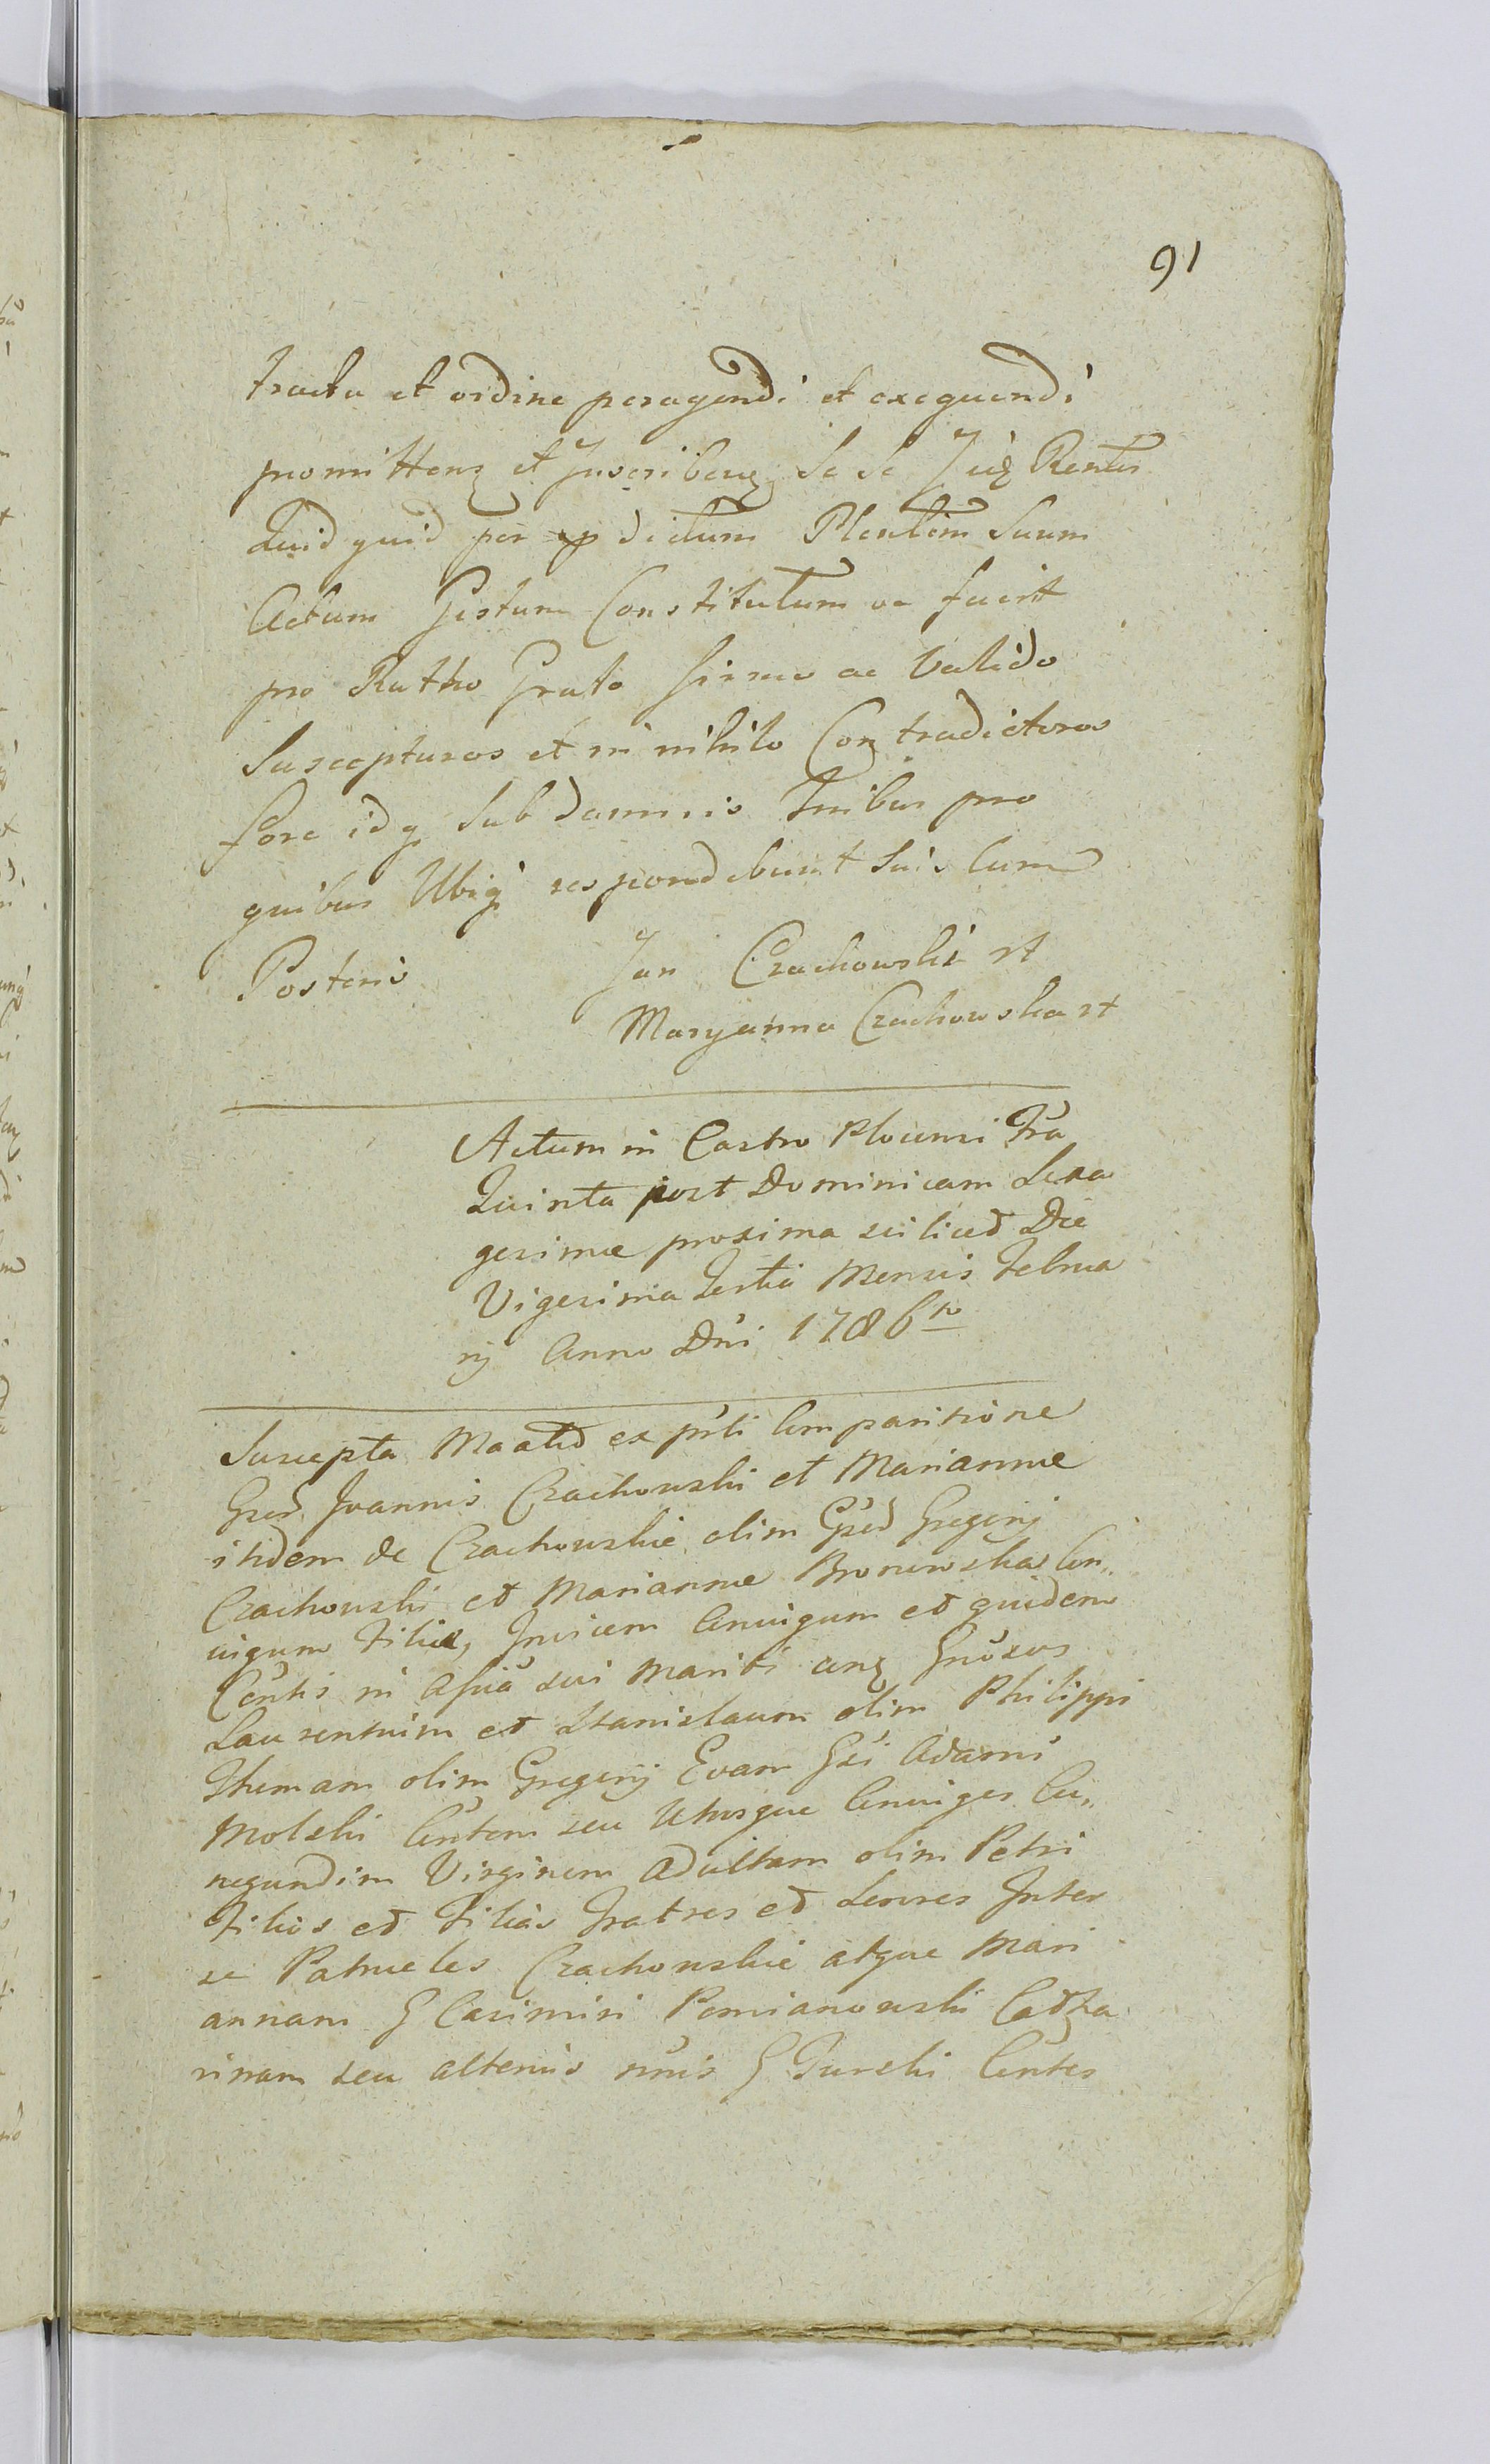 91
tractu et ordine peragendi et exequendi
promittens et Inscribens Se Se
Quidquid per dictum Plentem Suum
Actum Gestum Constitutum ve fuerit
pro Ratho Grato firmo ac Valido
Suscepturos et in nihilo Contradictoros
fore idq Sub damnis Tribus pro
quibus Ubiq respondebunt Suis Cum
Posteris Jan Czachowski
Maryanna Czachowska
Actum in Castro Plocensi Fra
Quinta post Dominicam Sexa
gesimae proxima scilicet Die
Vigesima Tertia Mensis Februa
rij Anno Dni 1786to
Suscepta ex pnti Comparitione
Gsed Joannis Czachowski et Mariannae
itidem de Czachowskie olim Gsed Gregorij
Czachowski et Mariannae Bronowska Con„
iugum Filiae, Invicem Coniugum et quidem
Contis in Asñia sui Mariti Gnosos
Laurentium et Stanislaum olim Philippi
Thomam olim Gregorij Evam Gsi Adami
Molski Contem seu Utrosque Coniuges Cu„
negundim Virginem Adultam olim Petri
Filios et Filias Fratres et Sorores Inter
se Patrueles Czachowskie atque Mari
annam G Casimiri Pomianowski Catha
rinam seu alterius nñis G Turski Contes